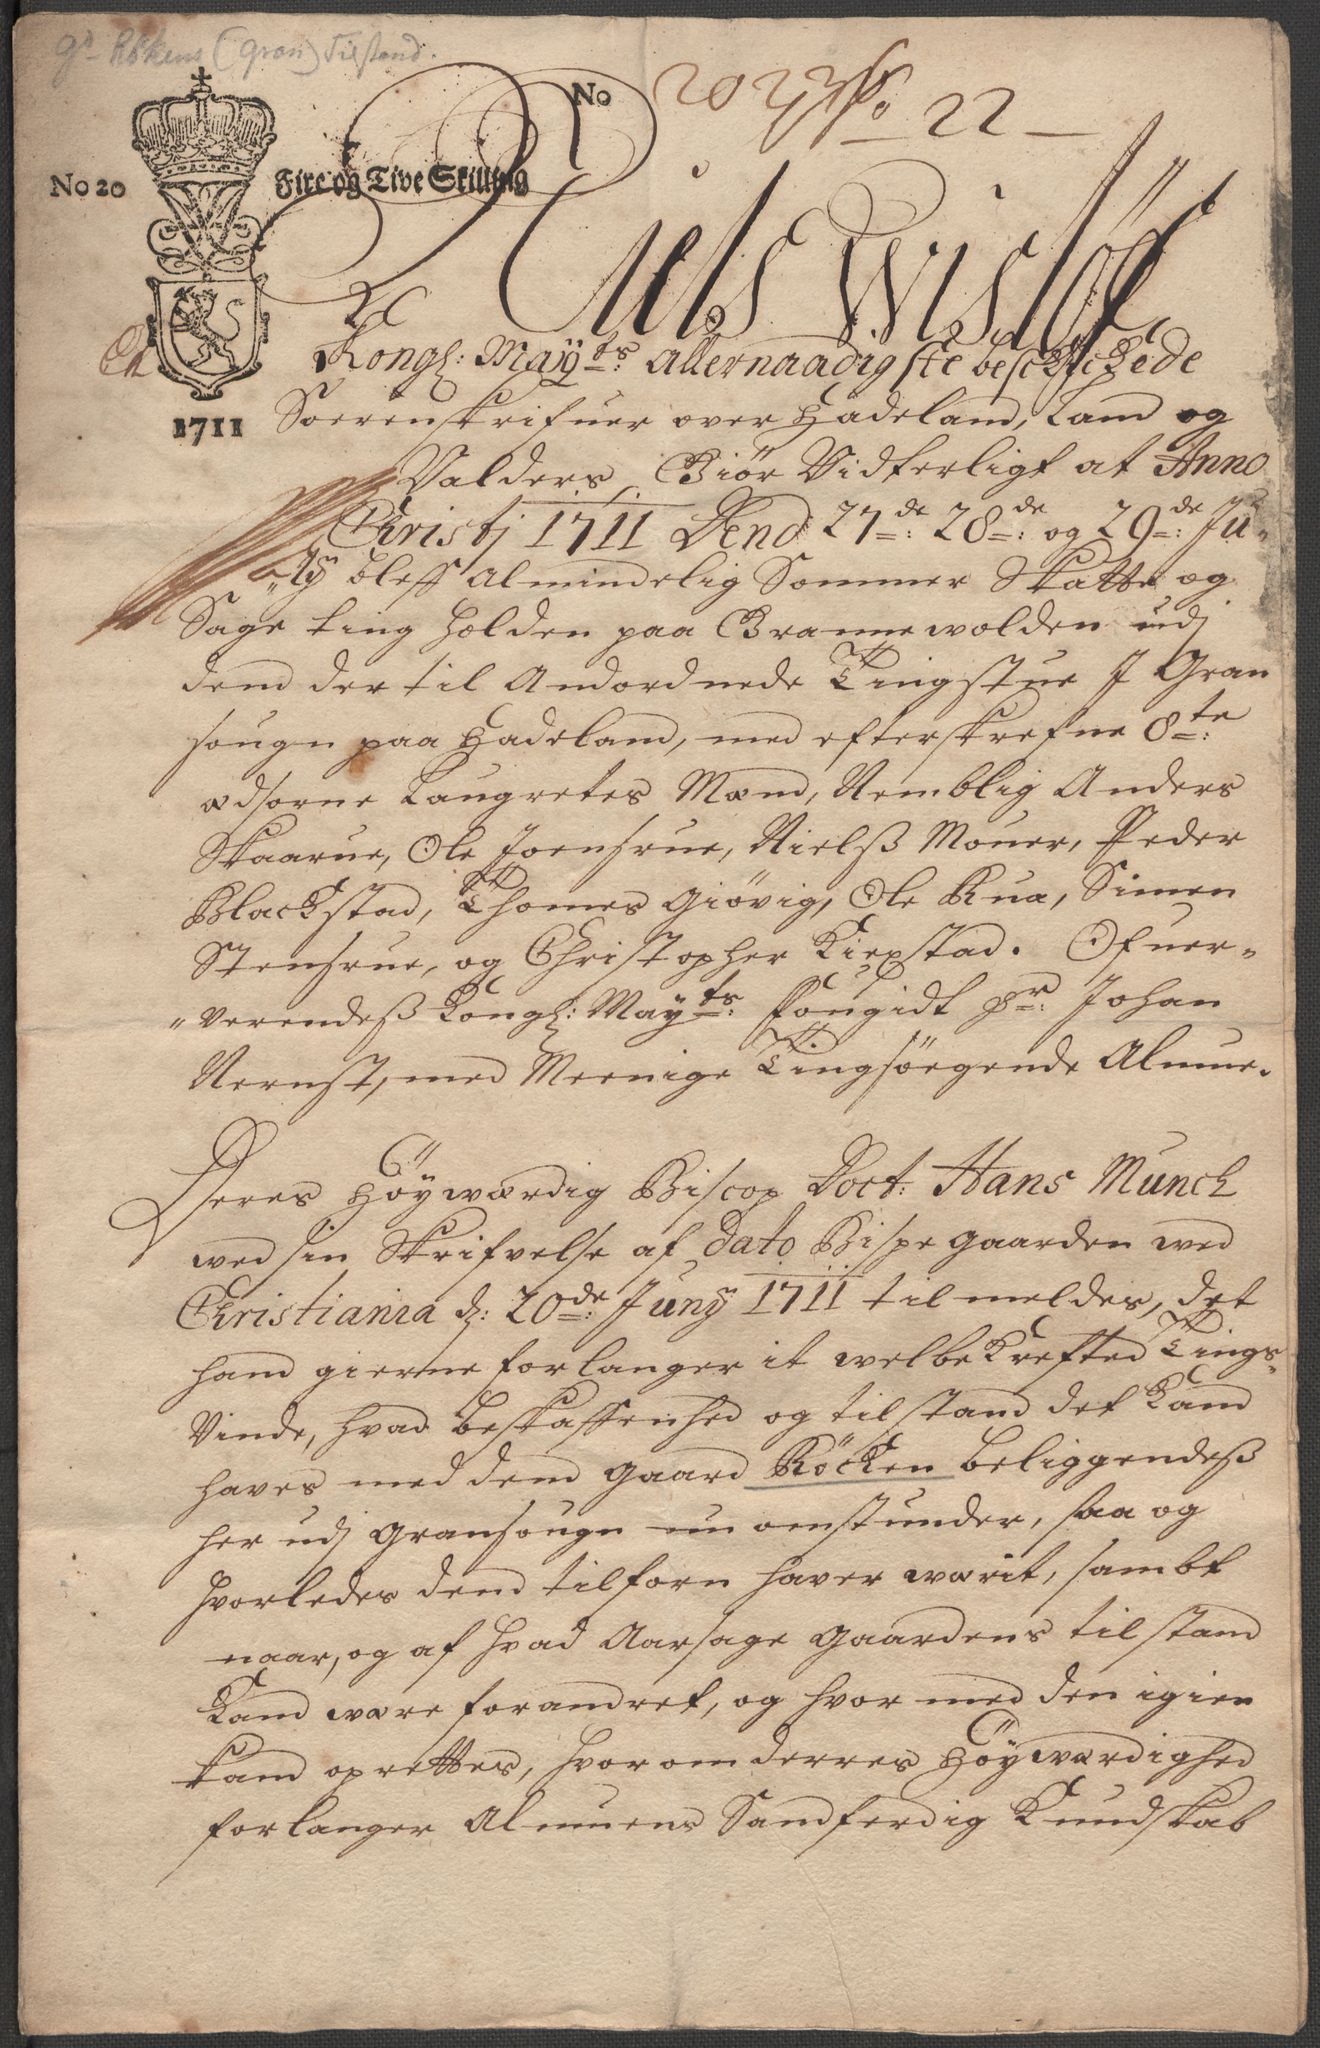 gd Røkens (Gran) Tilstand.
No
No 20
Fire og Tive Skilling
22
1711
Niels Wisløf
Kongl: Mayts: Allernaadigste beschickede
Sorenskrifuer over Hadeland, Land og
Valders, Giør Vidterligt at Anno
Christj 1711 Dend 27de: 28de: og 29de: Ju-
-ly bleff Almindelig Sommer Skatte og
Sage ting holden paa Grannewolden udj
dend der til Andordnede Tingstue J Gran
sougn paa Hadeland, med efterskrefne 8te:
ædsorne Laugretes Mænd, Nemblig Anders
Skaarue, Ole Joensrue, Nielß Moner, Peder
Blackstad, Thomes Giövig, Ole Rua, Simen
Stensrue, og Christopher Kiexstad. Ofuer-
-verendeß Kongl: Mayts: Fougidt Hr: Johan
Nernst, med Meenige Tingsöegende Almue.
Deres Höyværdig Biscop Doct: Hans Munch
ved sin Skrifvelse af Dato Bispegaarden ved
Christiania d: 20de: Junij 1711 tilmeldes, det
hand gierne forlanger it velbekrefted Tings-
Vinde, hvad beskaffenhed og tilstand det kand
haves med dend gaard Röcken beliggendeß
her udj Gransougn nu omstunder, saa og
hvorledes dend tilforn haver værit, sambt
naar, og af hvad Aarsage gaardens tilstand
kand være forandret, og hvor med den igien
kand oprettes, hvorom derres Höyværdighed
forlanger Almuens Sandferdig Kundskab